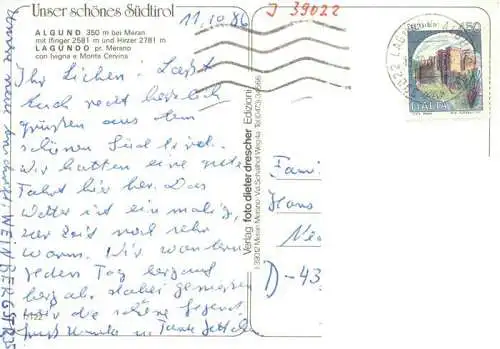 Unser schönes Südtirol
ALGUND 350 m bei Meran
mit Ifinger 2581 m und Hirzer 2781 m
LAGUNDO pr. Merano
con Ivigna e Monte Cervina
11.10.86
J 39022
Ihr Lieben! Laßt
Euch recht herzlich
grüßen aus dem
schönen Südtirol.
Wir hatten eine gute
Fahrt hier her. Das
Wetter ist einmalig,
zur Zeit noch sehr
warm. Wir wandern
jeden Tag bergauf
bergab. dabei genießen
wir die schöne Gegend
Verlag foto dieter drescher Edizioni
I 39012 Meran Merano
450
ITALIA
Fami
Hans
D-43